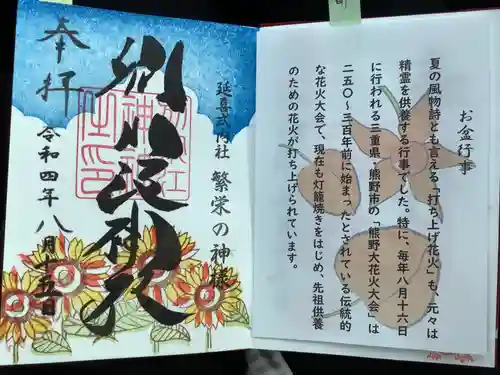 お盆行事
夏の風物詩とも言える「打ち上げ花火」も、元々は
精霊を供養する行事でした。特に、毎年八月十六日
に行われる三重県・熊野市の「熊野大花火大会」は
二五〇〜三百年前に始まったとされている伝統的
な花火大会で、現在も灯籠焼きをはじめ、先祖供養
のための花火が打ち上げられています。
延喜式内社 繁栄の神様
別小江神社
奉拝
令和四年八月十五日